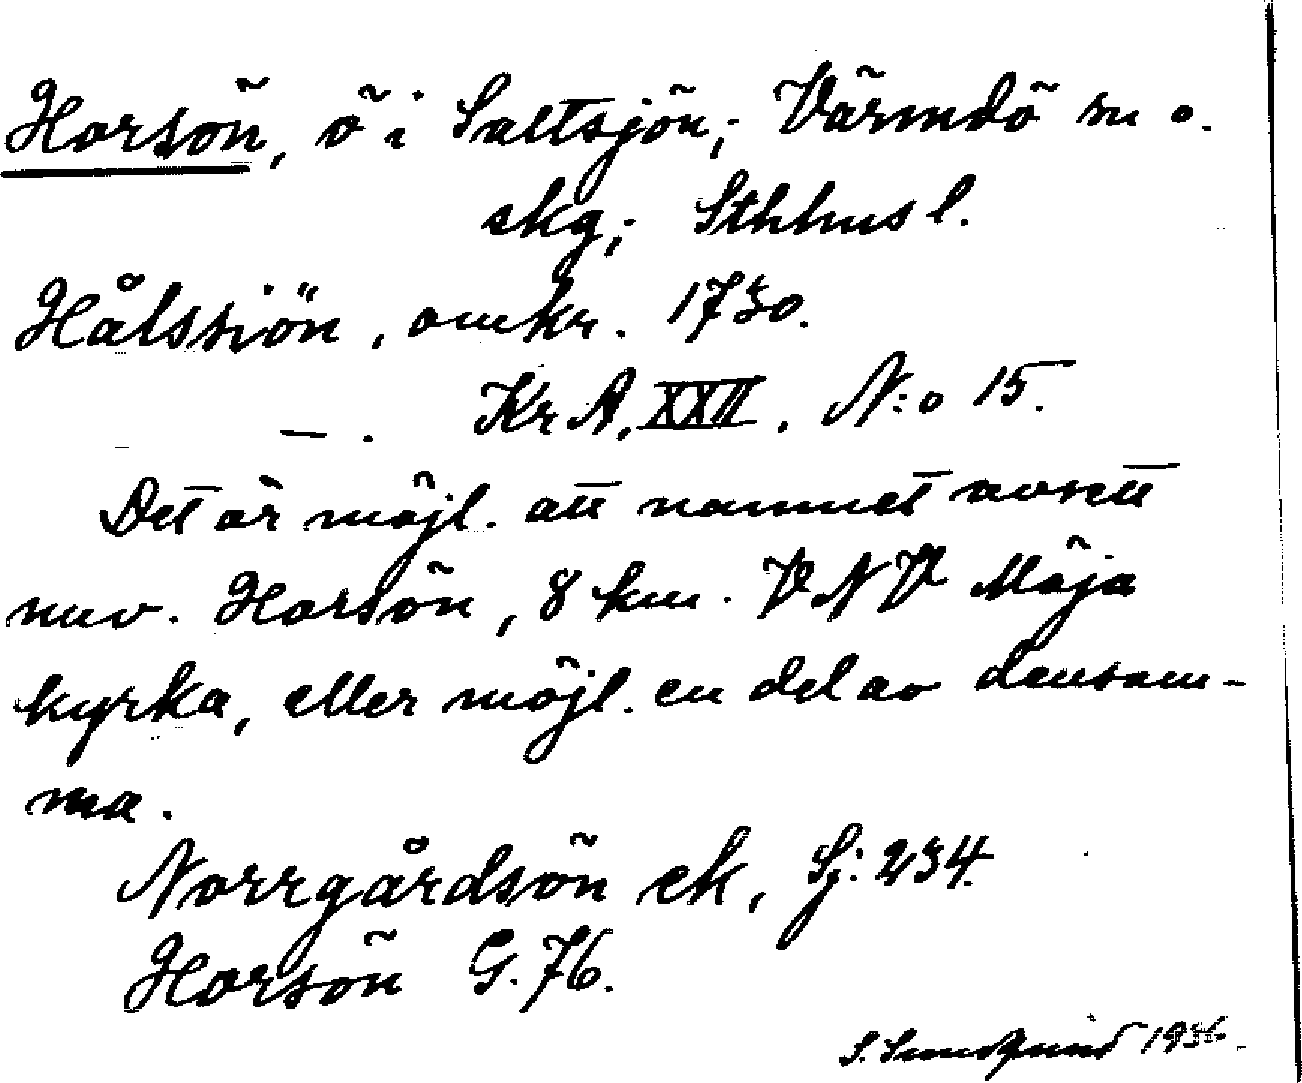 Horsön, ö i Saltsjön; Värmdö sn o.
skg; Sthhus l.
Hålssiön, omkr. 1730.
—. Kr A, XXII. N:o 15.
Det är möjl. att namnet avsett
nuv. Horsön, 8 km. VNV Möja
kyrka, eller möjl. en del av densam-
ma.
Norrgårdsön ek, Sj: 234.
Horsön G. 76.
S. 1936.